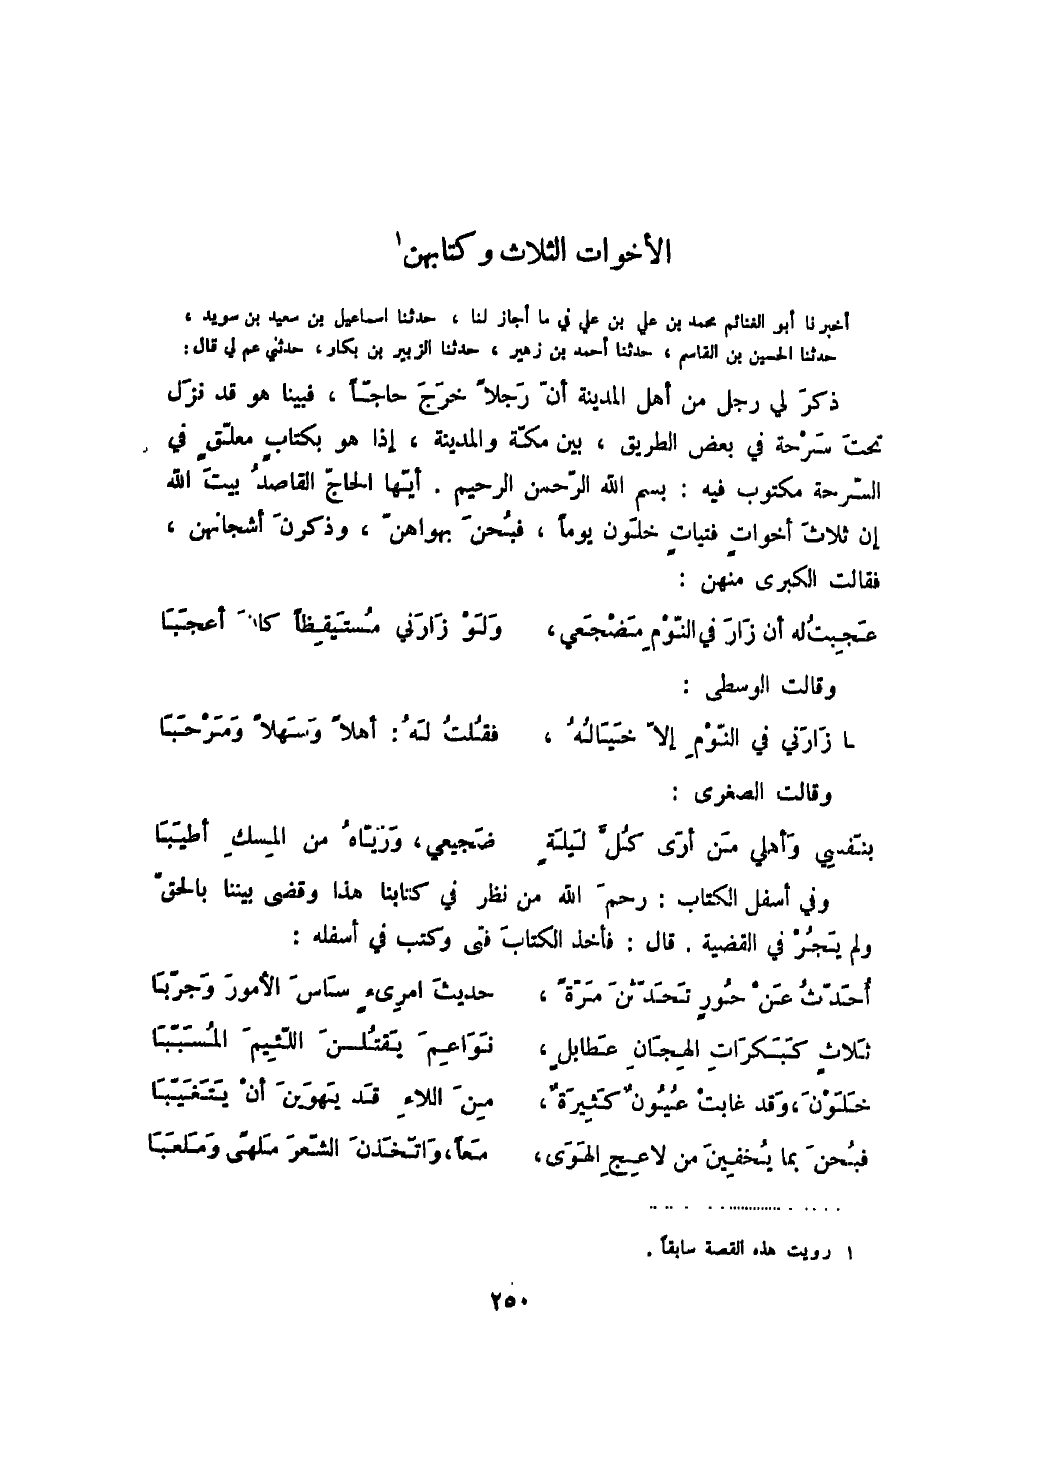 الأخوات الثلاث وكتابهن١
أخبرنا أبو الغنائم محمد بن علي بن علي في ما أجاز لنا ، حدثنا اسماعيل بن سعيد بن سويد ،
حدثنا الحسين بن القاسم ، حدثنا أحمد بن زهير ، حدثنا الزبير بن بكار ، حدثني عم لي قال :
ذكرَ لي رجل من أهل المدينة أنّ رَجلاً خرَجَ حاجّاً ، فبينا هو قد نزَل
تحتَ سَرْحة في بعض الطريق ، بين مكّة والمدينة ، إذا هو بكتابٍ معلّقٍ في
السّرحة مكتوب فيه : بسم الله الرّحمن الرحيم . أيّها الحاجّ القاصدُ بيتَ الله
إن ثلاثَ أخواتٍ فتياتٍ خلَون يوماً ، فبُحنَ بهواهنّ ، وذكرنَ أشجانهن ،
فقالت الكبرى منهن :
عَجِبتُ له أن زَارَ في النّوْمِ مَضْجَعي ، وَلَوْ زَارَني مُستَيقِظاً كانَ أعجَبَا
وقالت الوسطى :
ـا زَارَني في النّوْمِ إلاّ خَيَالُهُ ، فقُلتُ لَهُ : أهلاً وَسَهلاً وَمَرْحَبَا
وقالت الصغرى :
بنَفسِي وَأهلي مَن أرَى كُلَّ لَيلَةٍ ضَجيعي ، وَرَيّاهُ من المِسكِ أطيَبَا
وفي أسفل الكتاب : رحمَ الله من نظر في كتابنا هذا وقضى بيننا بالحقّ
ولم يَجُرْ في القضية . قال : فأخذ الكتابَ فتى وكتب في أسفله :
أُحَدّثُ عَنْ حُورٍ تَحَدّثنَ مَرّةً ، حديثَ امرِىءٍ ساسَ الأمورَ وَجرّبَا
ثَلاثٍ كَبَكرَاتِ الهِجَانِ عَطابلٍ ، نَوَاعِمَ يَقتُلنَ اللّئيمَ المُسَبّبَا
خلَوْنَ ، وَقد غابتْ عُيُونٌ كَثيرَةٌ ، مِنَ اللاءِ قد يَهوَينَ أنْ يَتَغَيّبَا
فبُحنَ بما يُخفينَ من لاعِجِ الهَوَى ، مَعاً ، وَاتّخَذنَ الشّعرَ مَلهىً وَمَلعَبَا
١ رويت هذه القصة سابقاً .
٢٥٠